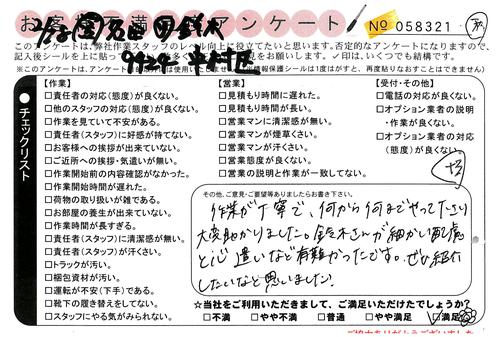 お客様満足アンケート
No 058321
このアンケートは、弊社作業スタッフのレベル向上に役立てたいと思います。否定的なアンケートになりますので、
記入後シールを上に貼って
お願いします。✓印は、いくつでも結構です。
※このアンケートは、アンケート
情報保護シールは1度はがすと、再度貼りなおすことはできません)
チェックリスト
【作業】
□責任者の対応(態度)が良くない。
□他のスタッフの対応(態度)が良くない。
□作業を見ていて不安がある。
□責任者(スタッフ)に好感が持てない。
□お客様への挨拶が出来ていない。
□ご近所への挨拶・気遣いが無い。
□作業開始前の内容確認がなかった。
□作業開始時間が遅れた。
□荷物の取り扱いが雑である。
□お部屋の養生が出来ていない。
□作業時間が長すぎる。
□責任者(スタッフ)に清潔感が無い。
□責任者(スタッフ)が汗くさい。
□トラックが汚い。
□梱包資材が汚い。
□運転が不安(下手)である。
□靴下の履き替えをしてない。
□スタッフにやる気がみられない。
【営業】
□見積もり時間に遅れた。
□見積もり時間が長い。
□営業マンに清潔感が無い。
□営業マンが煙草くさい。
□営業マンが汗くさい。
□営業態度が良くない。
□営業の説明と作業が一致してない。
【受付・その他】
□電話の対応が良くない。
□オプション業者の説明
・作業が良くない。
□オプション業者の対応
(態度)が良くない。
その他、ご意見・ご要望等ありましたらお書き下さい。
作業が丁寧で、何から何までやってたさり
大変助かりました。鈴木さんが細かい配慮
と心遣いなど有難かったです。ぜひ紹介
したいなと思いました!
☆当社をご利用いただきまして、ご満足いただけたでしょうか?
□不満 □やや不満 □普通 □やや満足 ☑満足
ご協力ありがとうございました